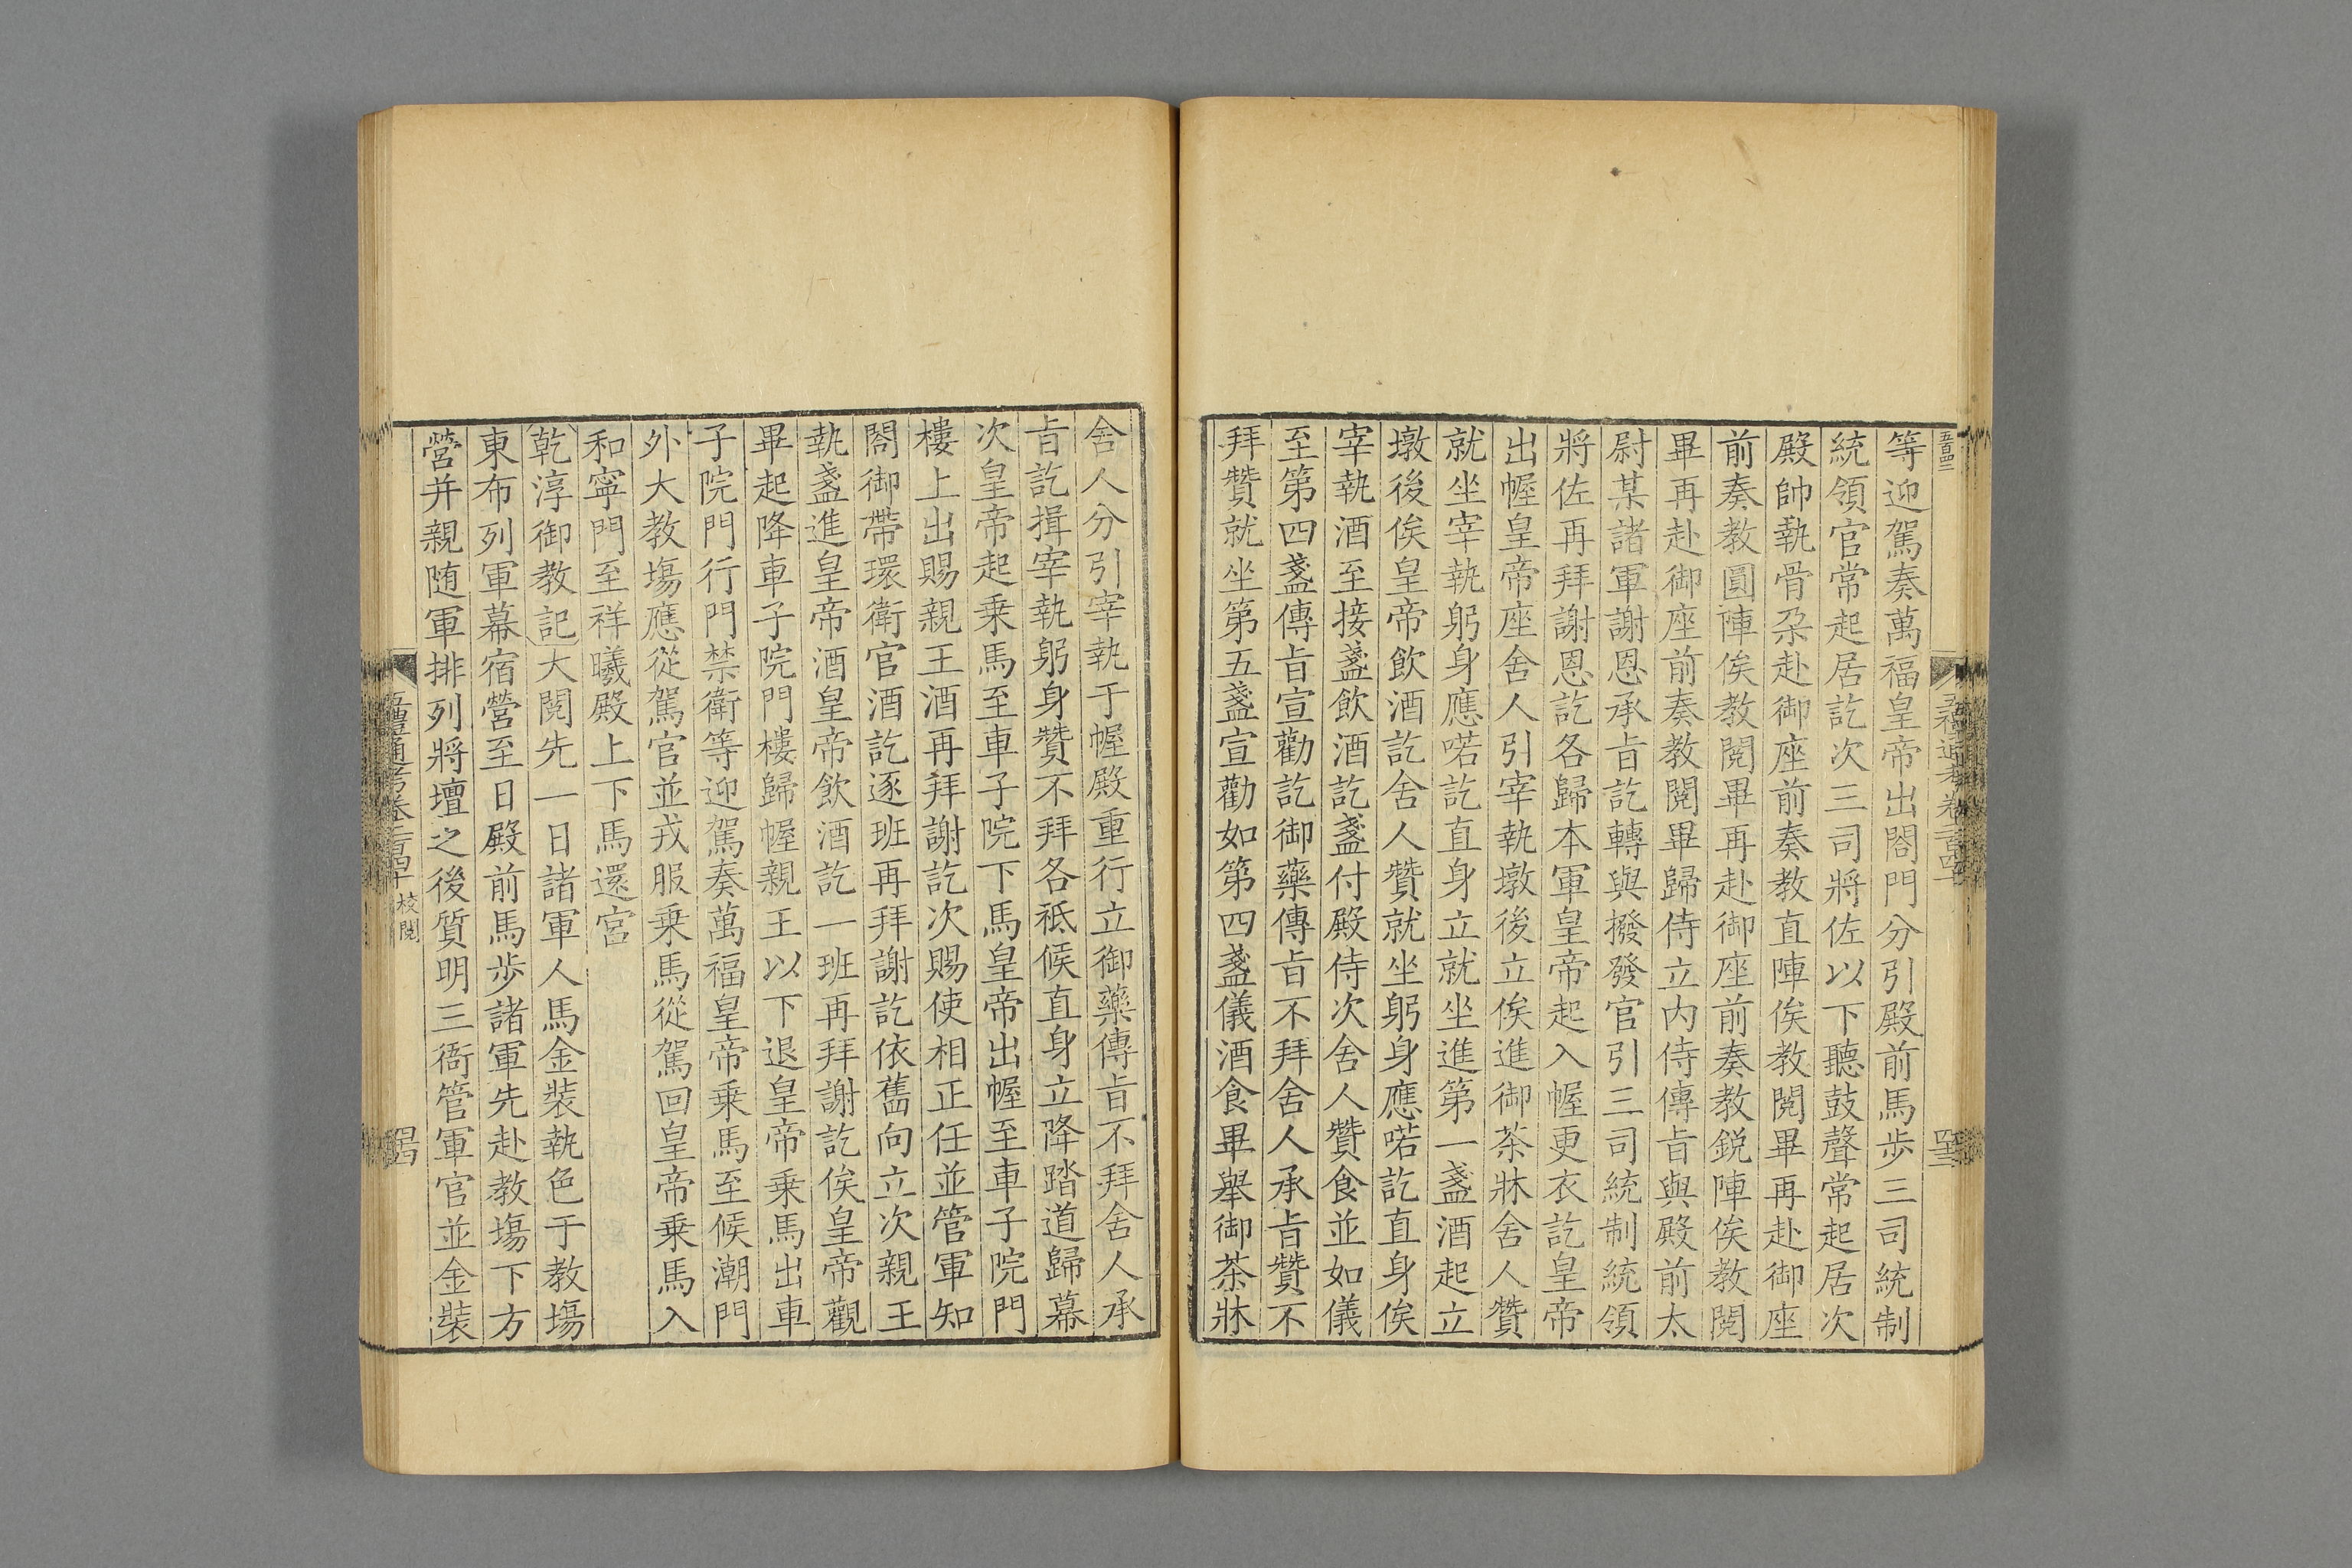 等迎駕奏萬福皇帝出閤門分引殿前馬步三司統制
統領官常起居訖次三司將佐以下聽鼓聲常起居次
殿帥執骨朶赴御座前奏教直陣俟教閱畢再赴御座
前奏教圓陣俟教閱畢再赴御座前奏教銳陣俟教閱
畢再赴御座前奏教閱畢歸侍立內侍傳㫖與殿前太
尉某諸軍謝恩承㫖訖轉與撥發官引三司統制統領
將佐再拜謝恩訖各歸本軍皇帝起入幄更衣訖皇帝
出幄皇帝座舍人引宰執墩後立俟進御茶牀舍人贊
就坐宰執躬身應喏訖直身立就坐進第一盞酒起立
墩後俟皇帝飲酒訖舍人贊就坐躬身應喏訖直身俟
宰執酒至接盞飲酒訖盞付殿侍次舍人贊食並如儀
至第四盞傳㫖宣勸訖御藥傳㫖不拜舍人承㫖贊不
拜贊就坐第五盞宣勸如第四盞儀酒食畢舉御茶牀
舍人分引宰執于幄殿重行立御藥傳㫖不拜舍人承
㫖訖揖宰執躬身贊不拜各祗候直身立降踏道歸幕
次皇帝起乘馬至車子院下馬皇帝出幄至車子院門
樓上出賜親王酒再拜謝訖次賜使相正任並管軍知
閤御帶環衛官酒訖逐班再拜謝訖依舊向立次親王
執盞進皇帝酒皇帝飲酒訖一班再拜謝訖俟皇帝觀
畢起降車子院門樓歸幄親王以下退皇帝乘馬出車
子院門行門禁衛等迎駕奏萬福皇帝乘馬至候潮門
外大教場應從駕官並戎服乘馬從駕回皇帝乘馬入
和寧門至祥曦殿上下馬還宮
乾淳御教記大閱先一日諸軍人馬金裝執色于教場
東布列軍幕宿營至日殿前馬步諸軍先赴教場下方
營并親随軍排列將壇之後質明三衙管軍官並金裝
校閱